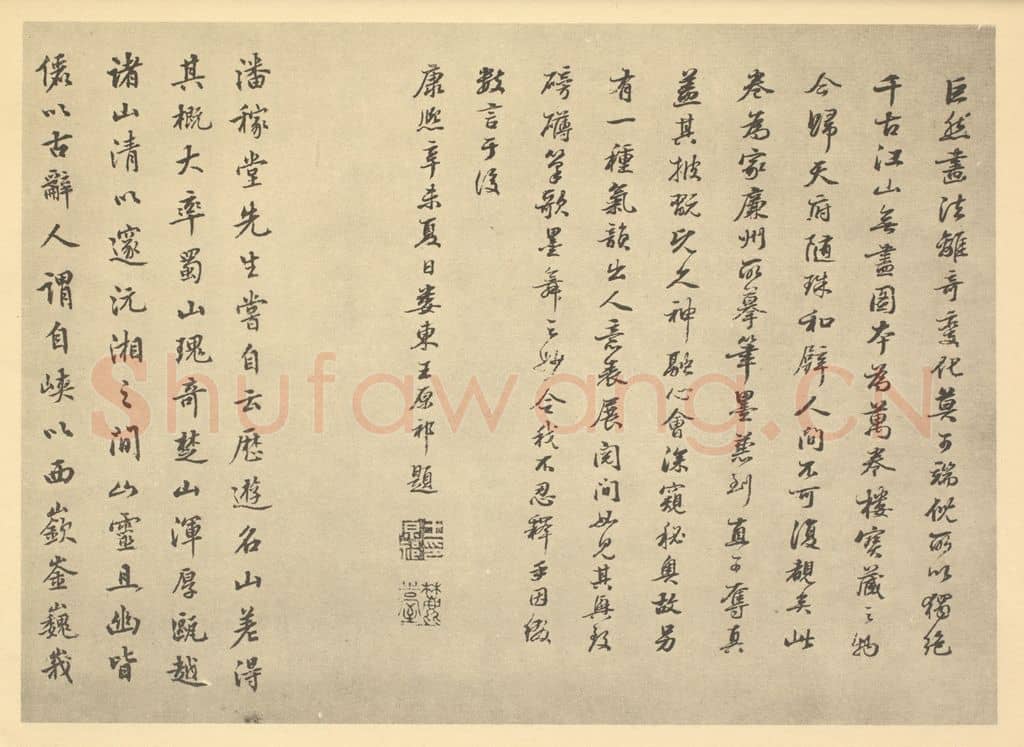 巨然畫法離奇變化莫可端倪所以獨絕
千古江山無盡圖本為萬卷樓寶藏之物
今歸天府隨珠和璧人間不可復覩矣此
卷為家廉州所摹筆墨兼到真可奪真
蓋其披翫既久神融心會深窺秘奧故另
有一種氣韻出人意表展閱間如見其
磅礴筆歌墨舞之妙令我不忍釋手因綴
數言于後
康熙辛未夏日婁東王原祁題
潘稼堂先生嘗自云歷遊名山差得
其概大率蜀山瑰奇楚山渾厚甌越
諸山清以邃沅湘之間山靈且幽皆
以古辭人謂自峽以西嶔崟巍峩
Shufawang.CN